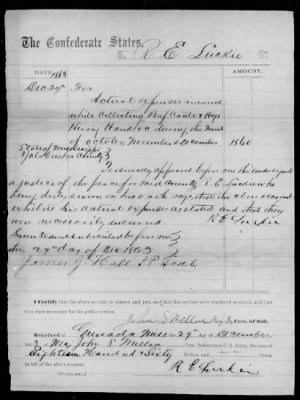 The Confederate States,
To R E Luckie Dr.
DATE 1863
AMOUNT.
Dec 29 For
Actual expenses incurred
while collecting Beef Cattle & Hogs
during the months
of October, November & December 1860
State of Mississippi
Yalobusha County
Personally appeared before me the undersigned
a justice of the peace for said County R. E. Luckie who
being duly sworn on his oath says, that the above account
exhibits his actual expenses as stated and that they
were necessarily incurred R E Luckie
Sworn to and subscribed before me
the 29 day of Dec 1863
James G Hall JP Seal
I Certify that the above account is correct and just; that the services were rendered as stated, and that
they were necessary for the public service.
John S Mellon Maj & Com. of Subs.
Received at Grenada Miss on 29th of December
1863 of Maj John S Mellon Com. Subsistence C. S. Army, the sum of
Eighteen Hundred & Sixty Dollars and
in full of the above account.
R E Luckie